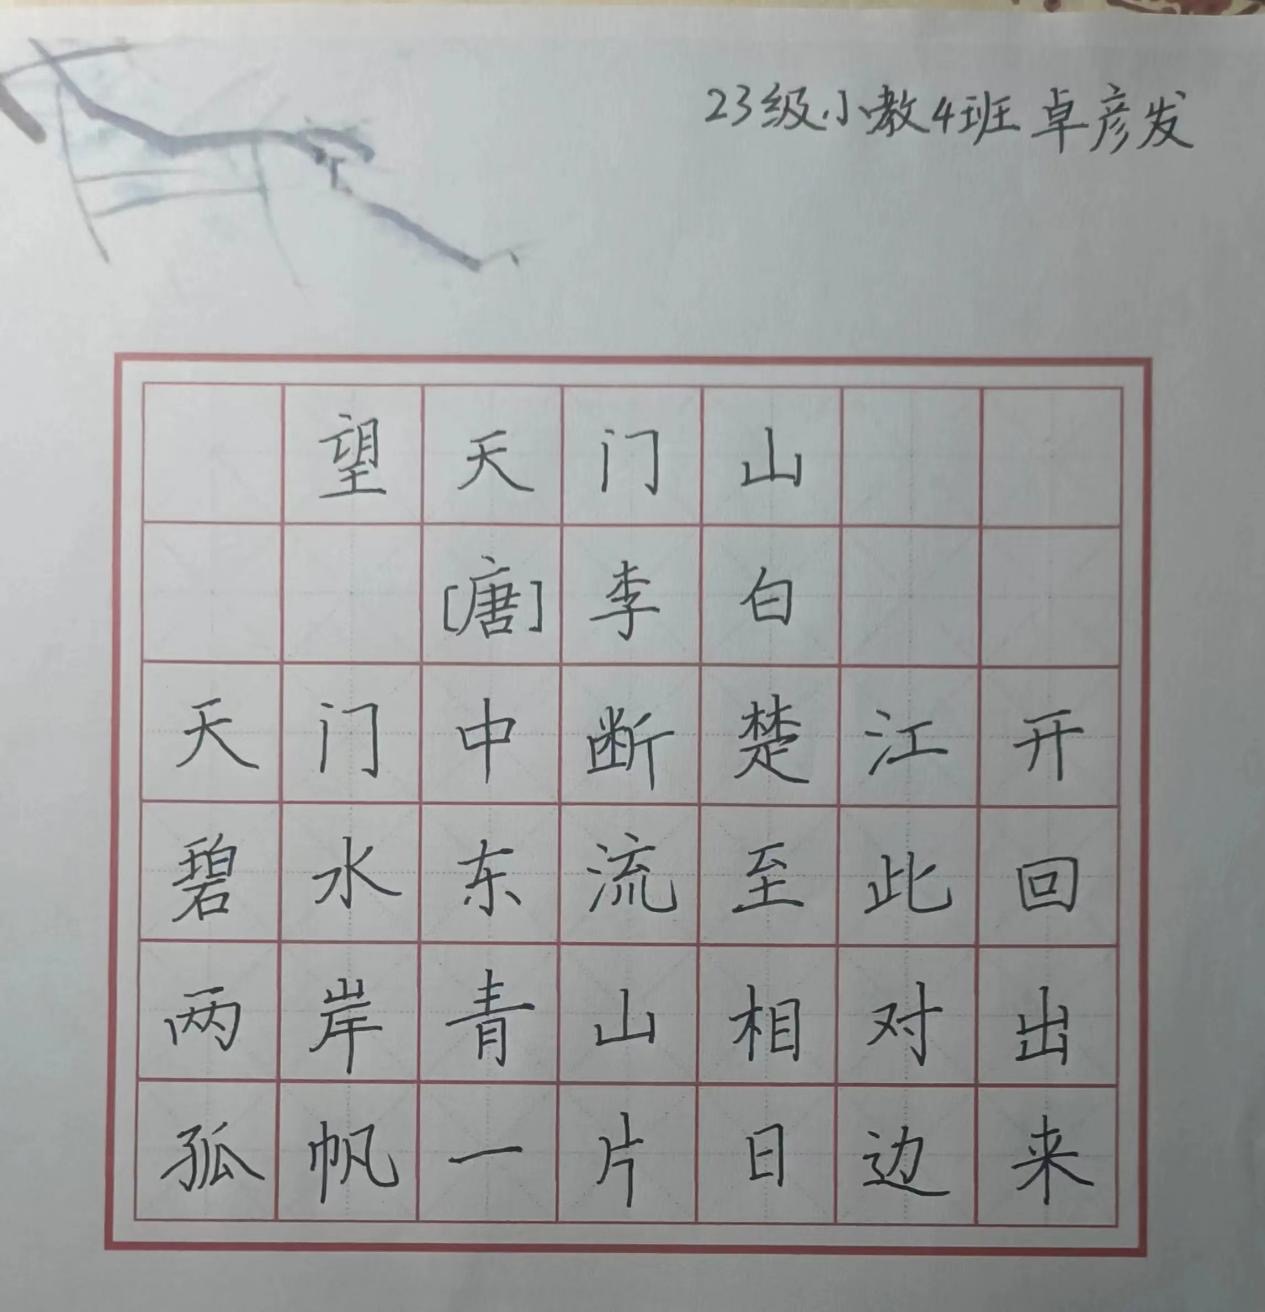 23级小教4班 卓彦发
望天门山
[唐]李白
天门中断楚江开
碧水东流至此回
两岸青山相对出
孤帆一片日边来